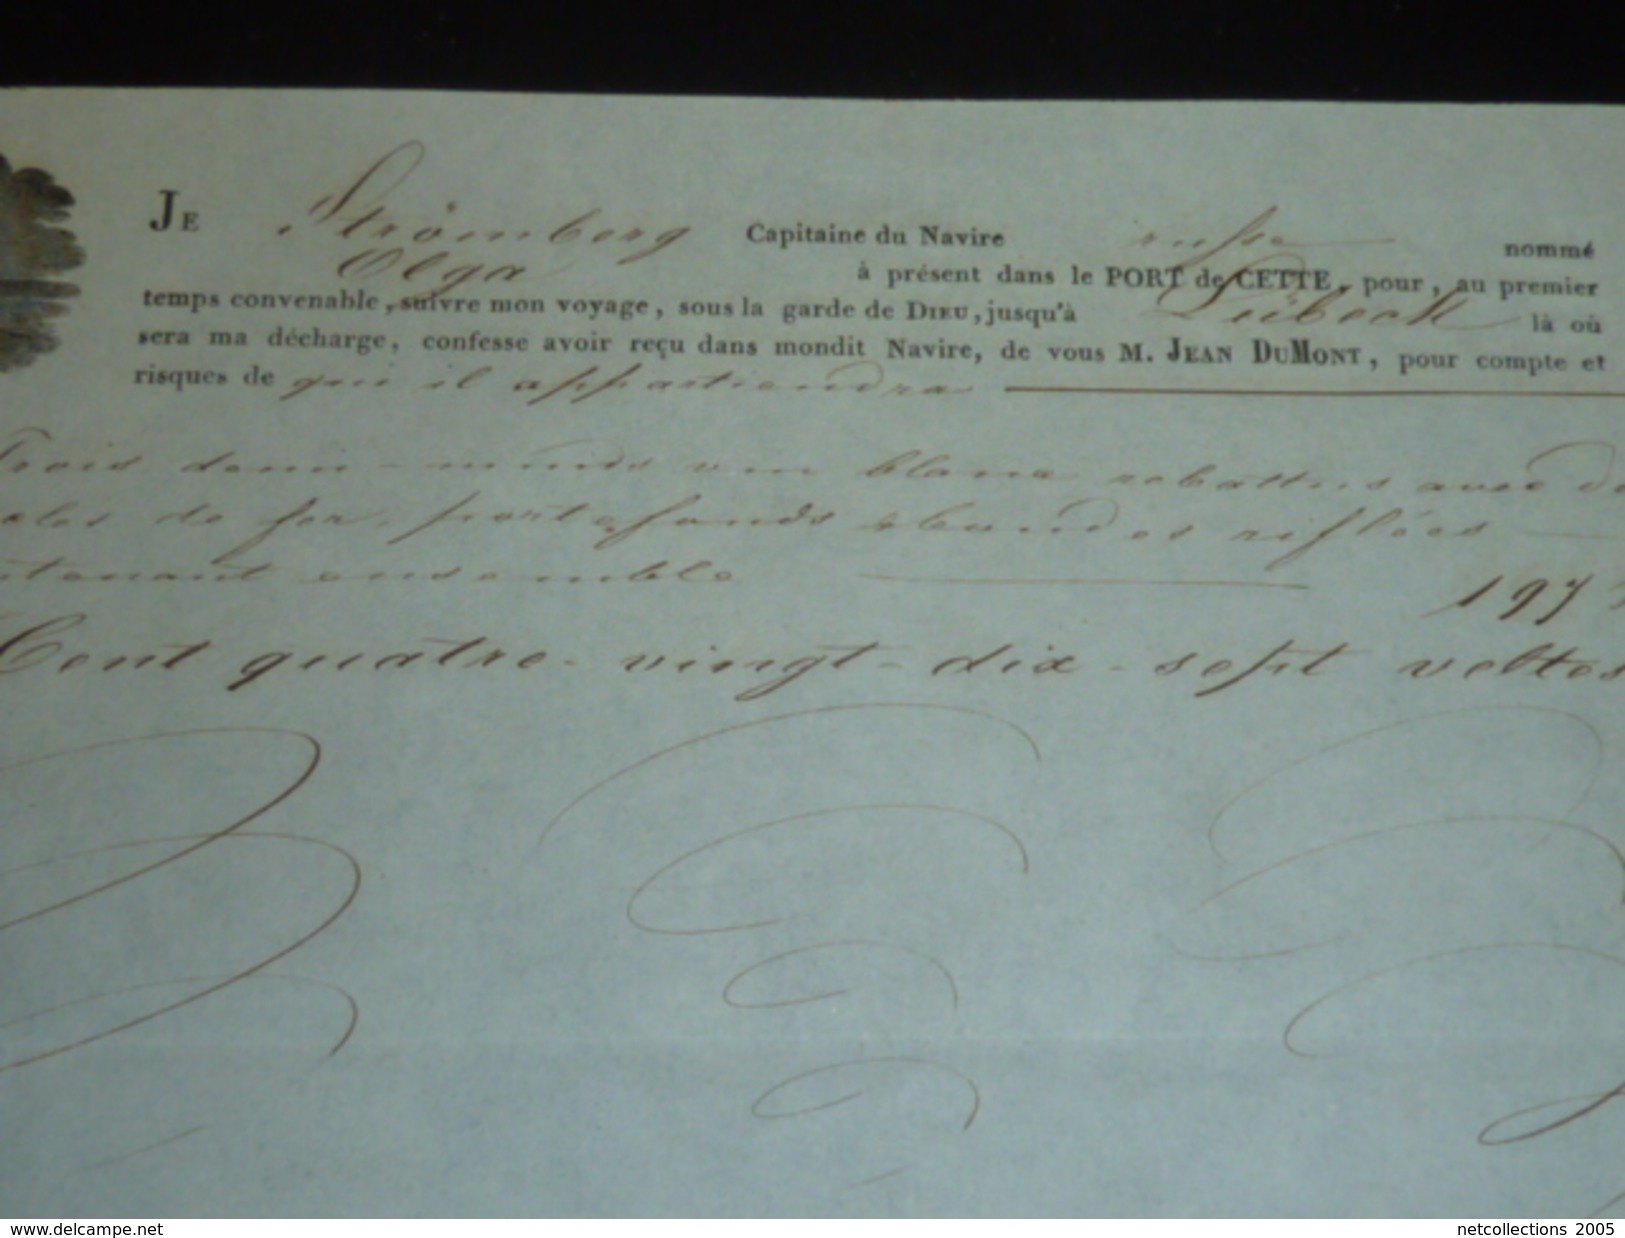 JE Strömberg Capitaine du Navire russe nommé
Olga à présent dans le PORT de CETTE, pour, au premier
temps convenable, suivre mon voyage, sous la garde de DIEU, jusqu'à Lübeck là où
sera ma décharge, confesse avoir reçu dans mondit Navire, de vous M. JEAN DUMONT, pour compte et
risques de qui il appartiendra
Trois demi-muids vin blanc rebattus avec
de fer, portefonds & bondes
ensemble 197
Cent quatre-vingt-dix-sept veltes
www.delcampe.net netcollections 2005